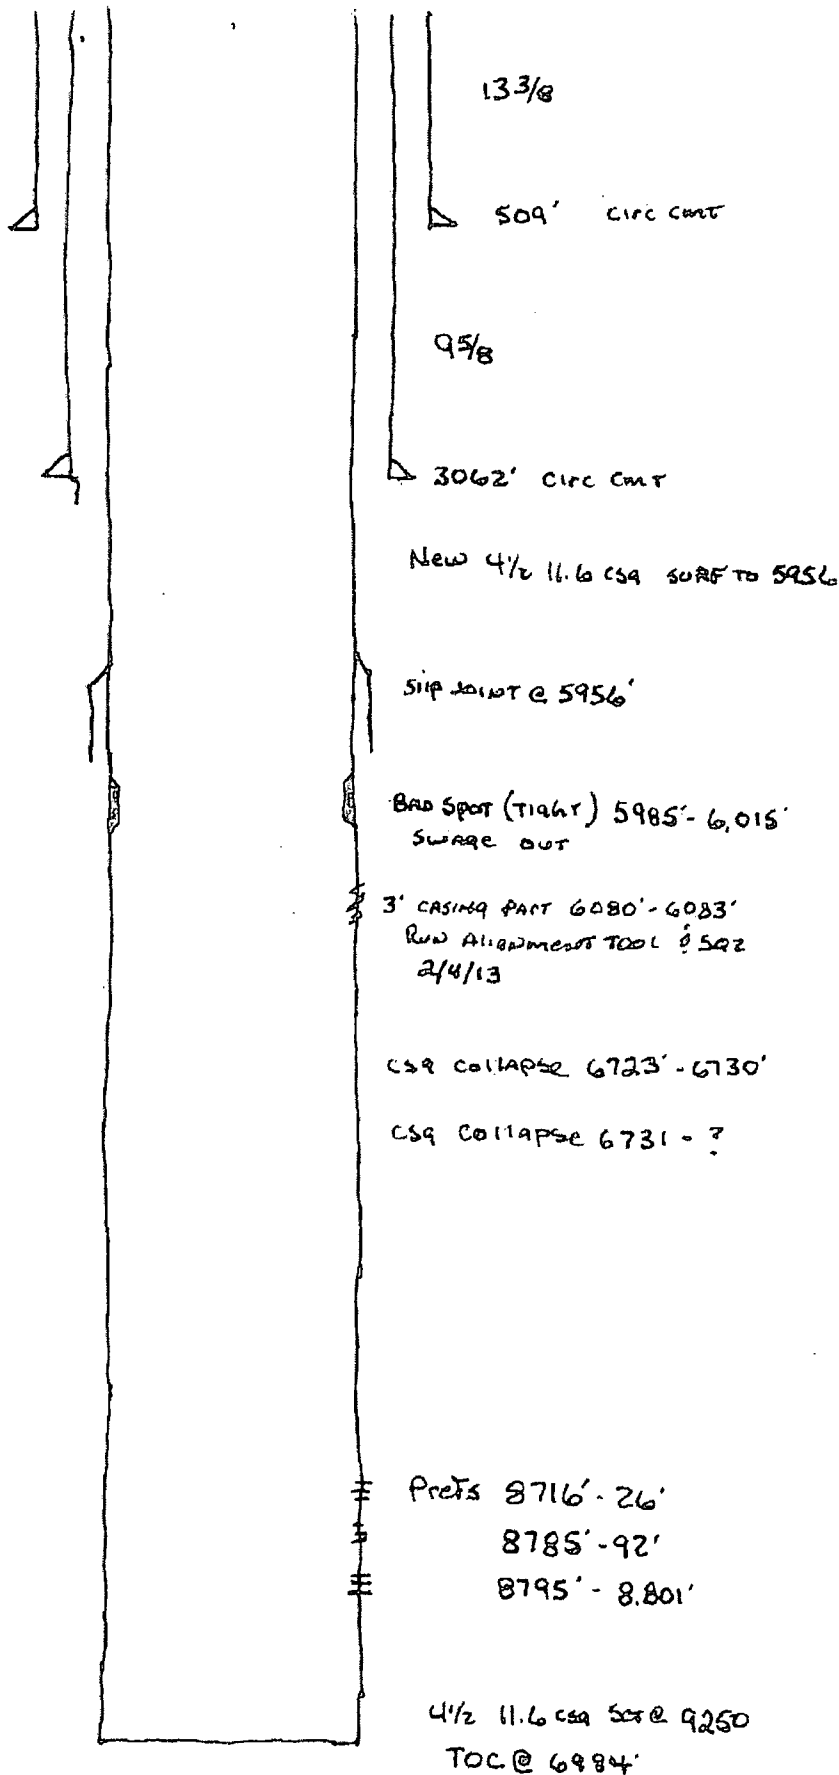 13 3/8
509' circ cmt
9 5/8
3062' circ cmt
New 4 1/2 11.6 csg surf to 5956
Slip joint @ 5956'
Bad spot (tight) 5985'-6,015'
Swage out
3' casing part 6080'-6083'
Run alignment tool & sqz
2/4/13
csg collapse 6723'-6730'
csg collapse 6731 - ?
Prefs 8716'-26'
8785'-92'
8795'-8,801'
4 1/2 11.6 csg set @ 9250
TOC @ 6984'